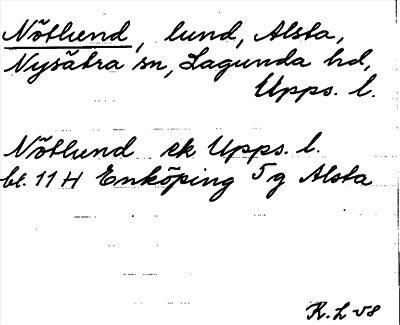 Nötlund, lund, Alsta,
Nysätra sn, Lagunda hd,
Upps. l.
Nötlund ek Upps. l.
bl. 11 H Enköping 5 g Alsta
R. L -58